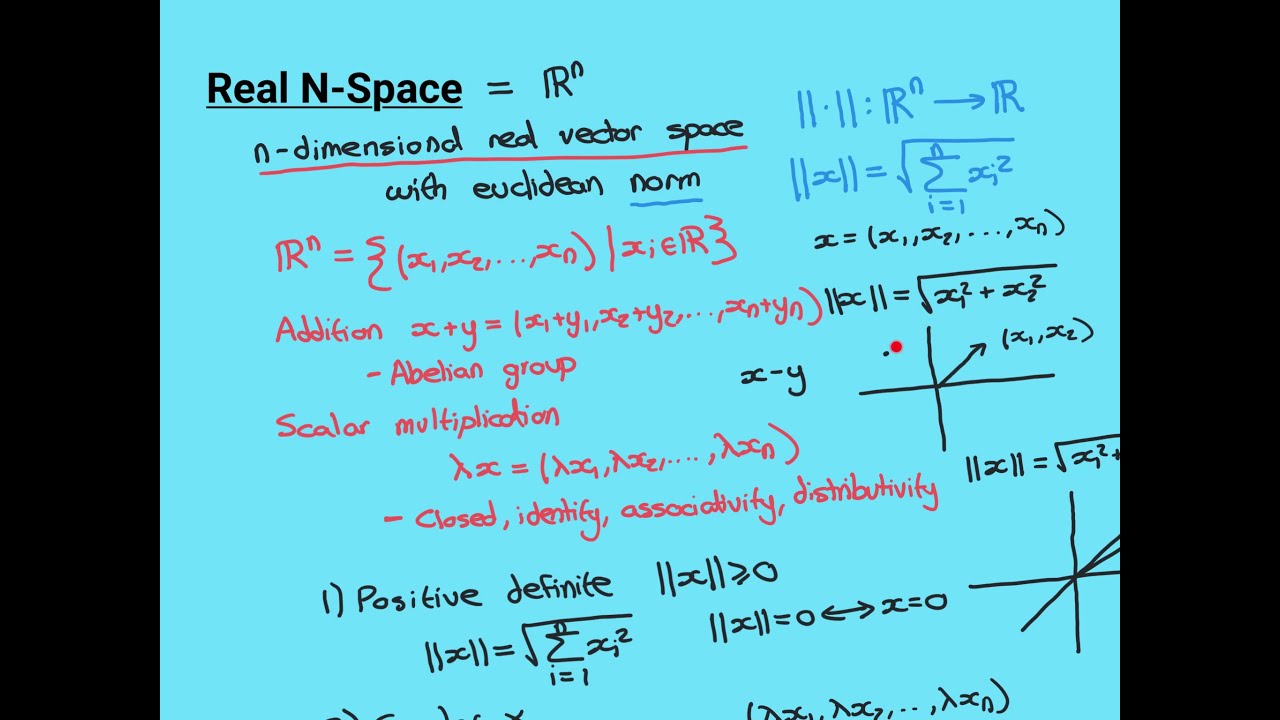 Real N-Space = ℝⁿ
n-dimensional real vector space
with euclidean norm
||·|| : ℝⁿ → ℝ
||x|| = √(∑ᵢ₌₁ⁿ xᵢ²)
x = (x₁, x₂, ..., xₙ)
ℝⁿ = {(x₁, x₂, ..., xₙ) | xᵢ ∈ ℝ}
||x|| = √(x₁² + x₂²)
Addition x + y = (x₁+y₁, x₂+y₂, ..., xₙ+yₙ)
(x₁, x₂)
- Abelian group
x - y
Scalar multiplication
λx = (λx₁, λx₂, ...., λxₙ)
||x|| = √(x₁² +
- Closed, identify, associativity, distributivity
1) Positive definite ||x|| ⩾ 0
||x|| = 0 ↔ x = 0
||x|| = √(∑ᵢ₌₁ⁿ xᵢ²)
(λx₁, λx₂, .., λxₙ)